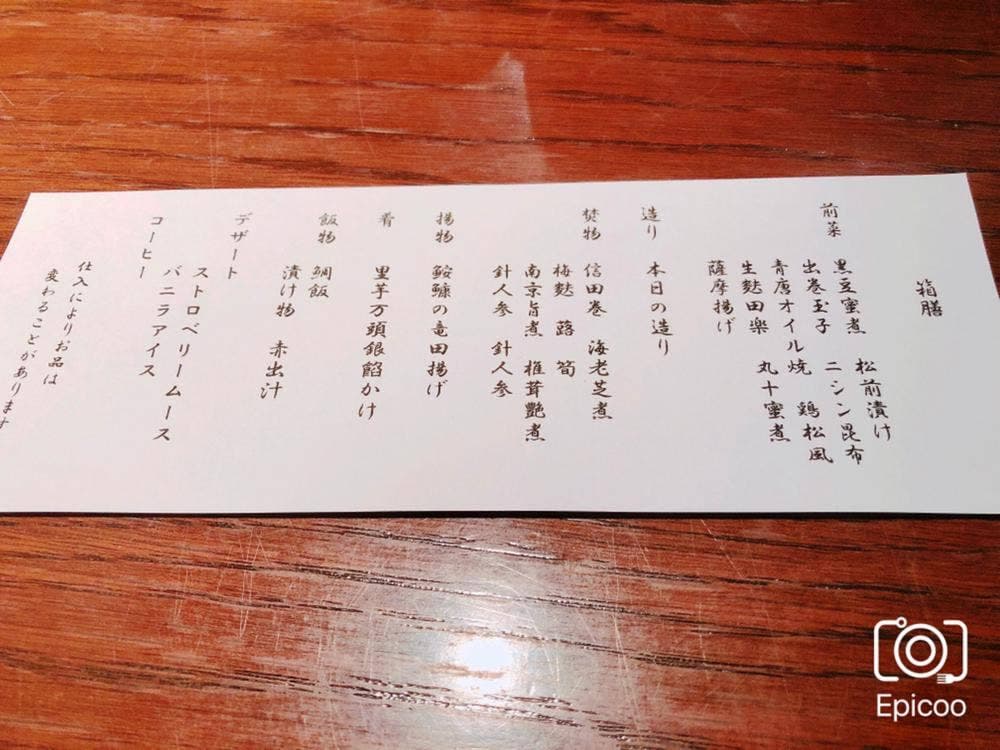 箱膳
前菜
黒豆蜜煮 松前漬け
出巻玉子 ニシン昆布
青唐オイル焼 鶏松風
生麩田楽 丸十蜜煮
薩摩揚げ
造り 本日の造り
焚物 信田巻 海老芝煮
梅麩 蕗 筍
南京旨煮 椎茸艶煮
針人参 針人参
揚物 鮟鱇の竜田揚げ
肴 里芋万頭銀餡かけ
飯物 鯛飯
漬け物 赤出汁
デザート
ストロベリームース
バニラアイス
コーヒー
仕入によりお品は
変わることがあります
Epicoo